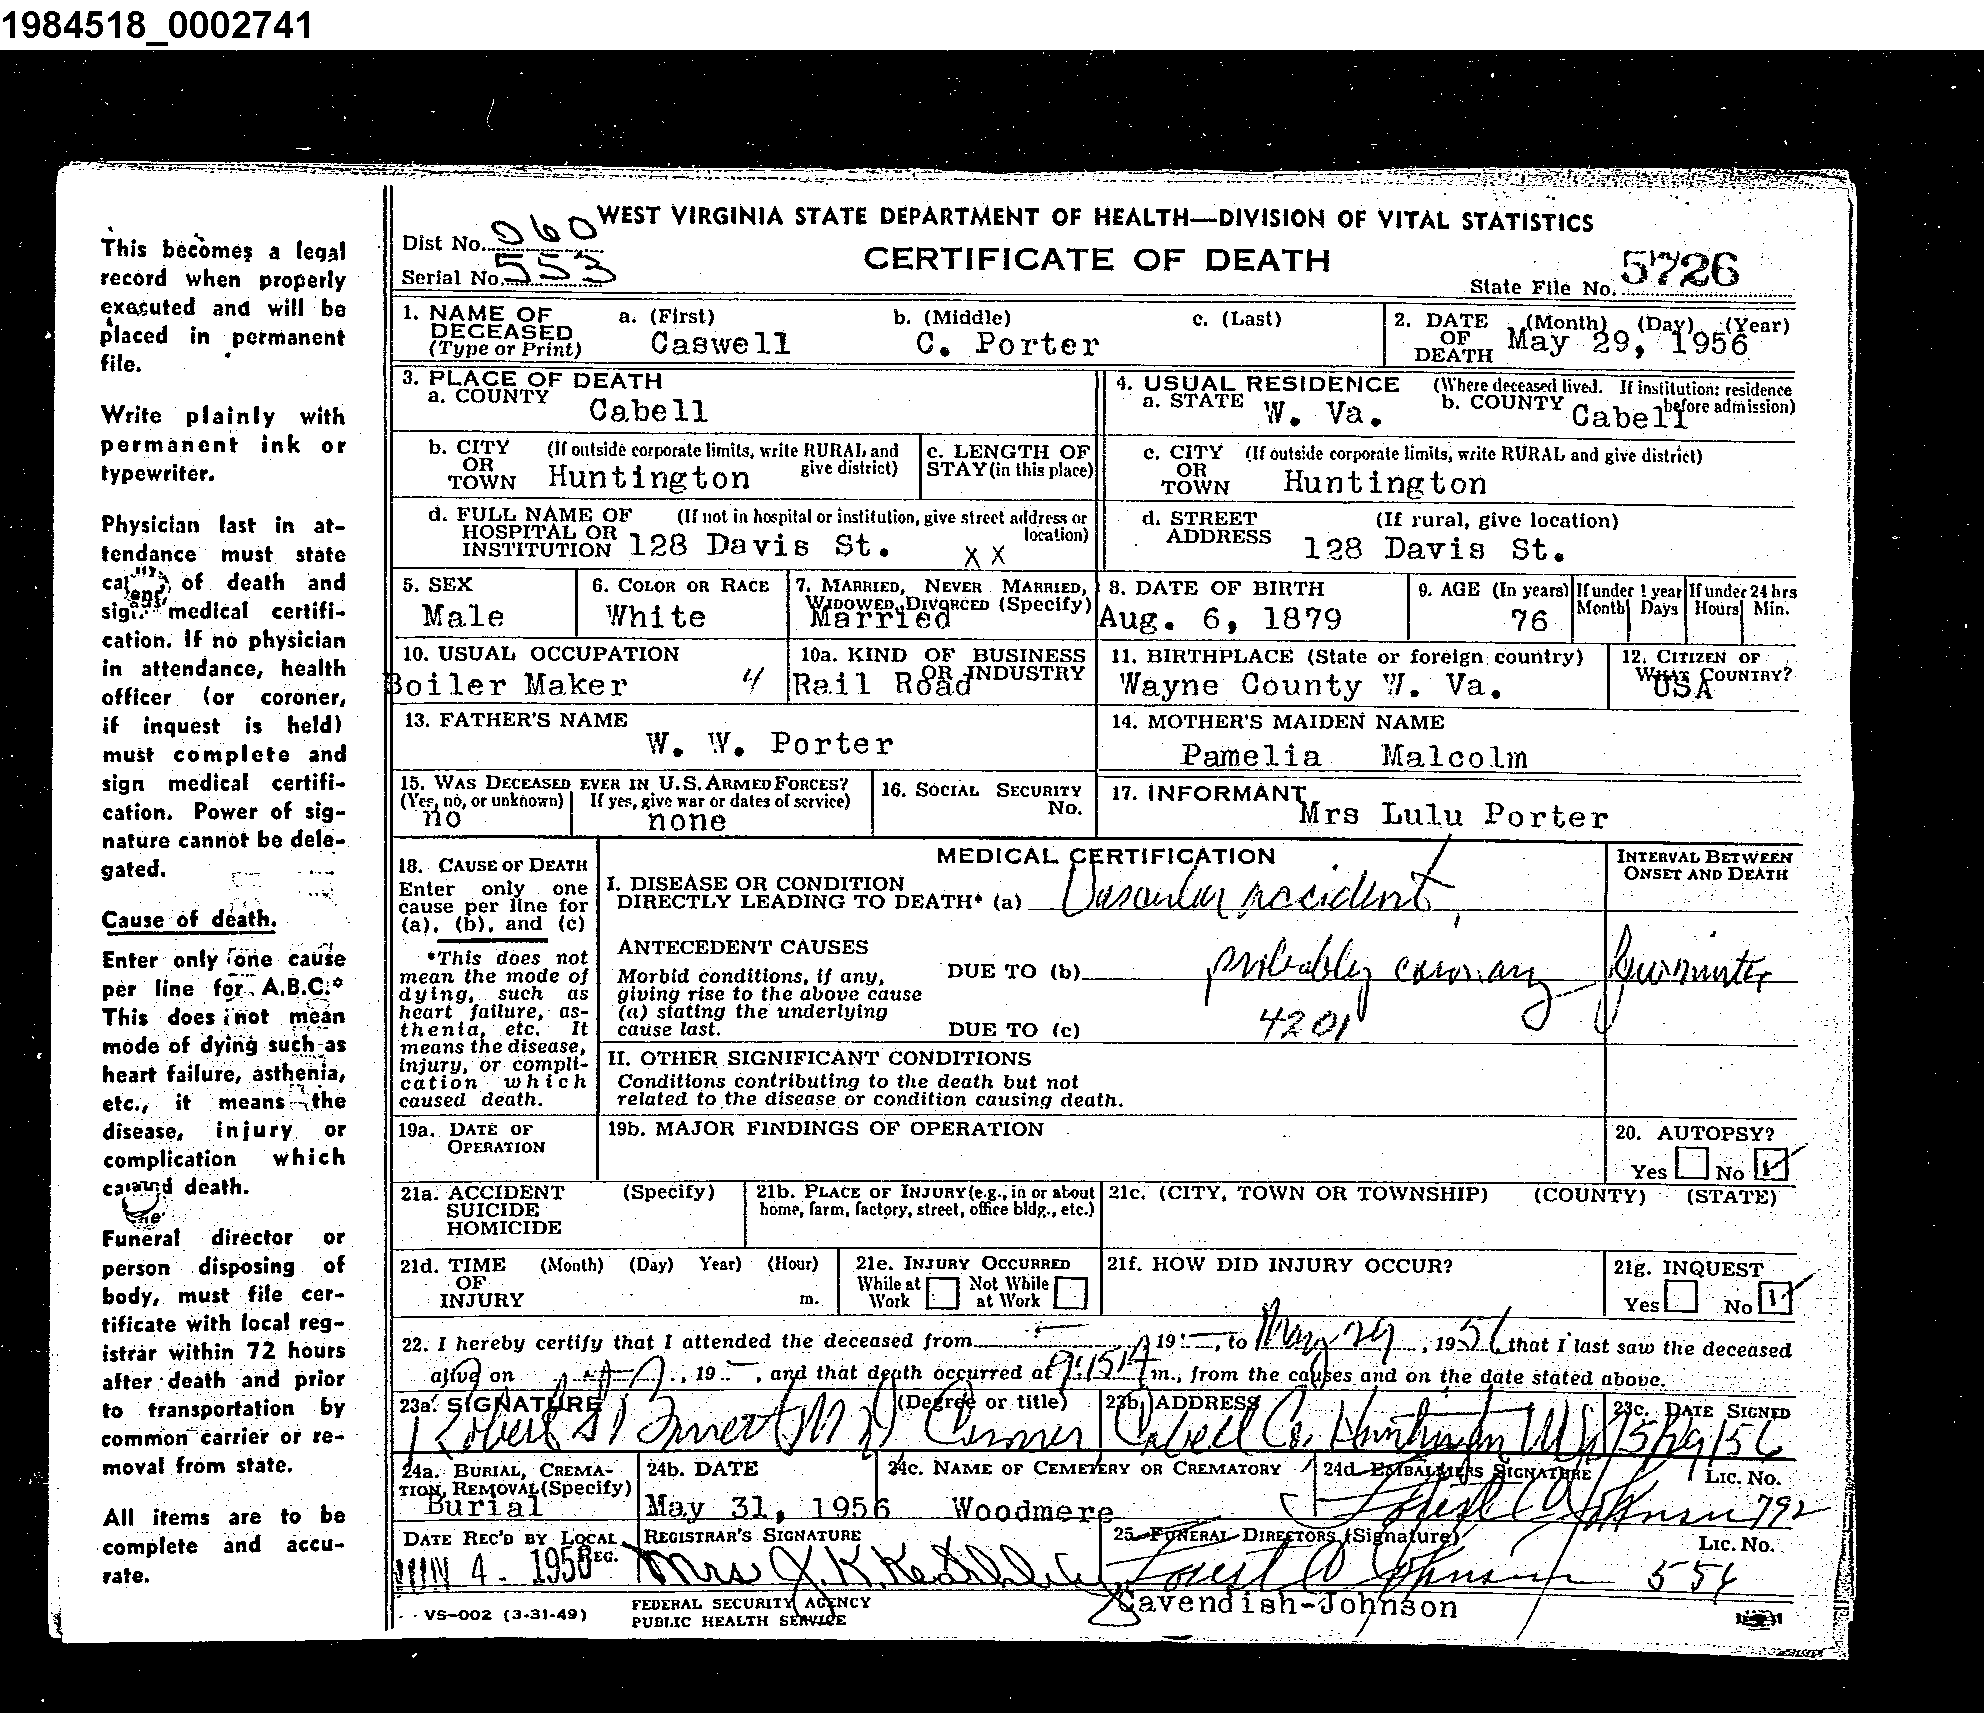 1984518_0002741
This becomes a legal
record when properly
executed and will be
placed in permanent
file.
Write plainly with
permanent ink or
typewriter.
Physician last in at-
tendance must state
of death and
sign medical certifi-
cation. If no physician
in attendance, health
officer (or coroner,
if inquest is held)
must complete and
sign medical certifi-
cation. Power of sig-
nature cannot be dele-
gated.
Cause of death.
Enter only one cause
per line for A.B.C.*
This does not mean
mode of dying such as
heart failure, asthenia,
etc., it means the
disease, injury or
complication which
death.
Funeral director or
person disposing of
body, must file cer-
tificate with local reg-
istrar within 72 hours
after death and prior
to transportation by
common carrier or re-
moval from state.
All items are to be
complete and accu-
rate.
WEST VIRGINIA STATE DEPARTMENT OF HEALTH—DIVISION OF VITAL STATISTICS
Dist No. 060
CERTIFICATE OF DEATH
Serial No. 553
State File No. 5726
1. NAME OF DECEASED (Type or Print) a. (First) b. (Middle) c. (Last)
Caswell C. Porter
2. DATE OF DEATH (Month) (Day) (Year)
May 29, 1956
3. PLACE OF DEATH
a. COUNTY Cabell
4. USUAL RESIDENCE (Where deceased lived. If institution: residence before admission)
a. STATE W. Va. b. COUNTY Cabell
b. CITY OR TOWN (If outside corporate limits, write RURAL and give district) Huntington
c. LENGTH OF STAY (in this place)
c. CITY OR TOWN (If outside corporate limits, write RURAL and give district) Huntington
d. FULL NAME OF HOSPITAL OR INSTITUTION (If not in hospital or institution, give street address or location) 128 Davis St. XX
d. STREET ADDRESS (If rural, give location) 128 Davis St.
5. SEX Male
6. COLOR OR RACE White
7. MARRIED, NEVER MARRIED, WIDOWED, DIVORCED (Specify) Married
8. DATE OF BIRTH Aug. 6, 1879
9. AGE (In years) 76
If under 1 year Month Days
If under 24 hrs Hours Min.
10. USUAL OCCUPATION Boiler Maker
10a. KIND OF BUSINESS OR INDUSTRY Rail Road
11. BIRTHPLACE (State or foreign country) Wayne County W. Va.
12. CITIZEN OF WHAT COUNTRY? USA
13. FATHER'S NAME W. W. Porter
14. MOTHER'S MAIDEN NAME Pamelia Malcolm
15. WAS DECEASED EVER IN U.S. ARMED FORCES?
(Yes, no, or unknown) no
If yes, give war or dates of service) none
16. SOCIAL SECURITY No.
17. INFORMANT Mrs Lulu Porter
18. CAUSE OF DEATH
Enter only one cause per line for (a), (b), and (c)
*This does not mean the mode of dying, such as heart failure, asthenia, etc. It means the disease, injury, or complication which caused death.
MEDICAL CERTIFICATION
INTERVAL BETWEEN ONSET AND DEATH
I. DISEASE OR CONDITION
DIRECTLY LEADING TO DEATH* (a) Vascular accident,
ANTECEDENT CAUSES
Morbid conditions, if any, giving rise to the above cause (a) stating the underlying cause last.
DUE TO (b) probably coronary
DUE TO (c) 4201
II. OTHER SIGNIFICANT CONDITIONS
Conditions contributing to the death but not
related to the disease or condition causing death.
19a. DATE OF OPERATION
19b. MAJOR FINDINGS OF OPERATION
20. AUTOPSY?
Yes No
21a. ACCIDENT SUICIDE HOMICIDE (Specify)
21b. PLACE OF INJURY (e.g., in or about home, farm, factory, street, office bldg., etc.)
21c. (CITY, TOWN OR TOWNSHIP) (COUNTY) (STATE)
21d. TIME OF INJURY (Month) (Day) Year) (Hour) m.
21e. INJURY OCCURRED
While at Work Not While at Work
21f. HOW DID INJURY OCCUR?
21g. INQUEST
Yes No
22. I hereby certify that I attended the deceased from 19, to May 29, 1956 that I last saw the deceased
alive on , 19 , and that death occurred at 9:15 A m., from the causes and on the date stated above.
23a. SIGNATURE (Degree or title) Robert Barrett MD Coroner
23b. ADDRESS Cabell Co. Huntington W Va
23c. DATE SIGNED 5/29/56
24a. BURIAL, CREMATION, REMOVAL (Specify) Burial
24b. DATE May 31, 1956
24c. NAME OF CEMETERY OR CREMATORY Woodmere
24d. EMBALMERS SIGNATURE Lic. No.
Forest O Johnson 792
DATE REC'D BY LOCAL REG.
JUN 4 - 1956
REGISTRAR'S SIGNATURE
Mrs J. K.
25. FUNERAL DIRECTORS (Signature) Lic. No.
Forest O Johnson 556
Cavendish-Johnson
VS-002 (3-31-49)
FEDERAL SECURITY AGENCY
PUBLIC HEALTH SERVICE